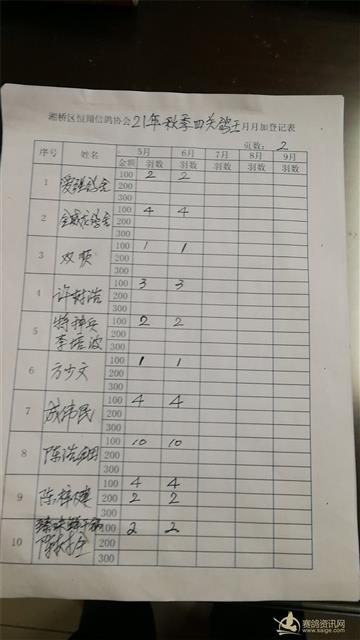 湘桥区恒翔信鸽协会21年秋季四关鸽王月月加登记表
页数: 2
序号 姓名 5月 6月 7月 8月 9月
金额 羽数 羽数 羽数 羽数 羽数
1 100 2 2
200
300
2 100 4 4
200
300
3 双顺 100 1 1
200
300
4 100 3 3
200
300
5 特种兵 100 2 2
李培波 200
300
6 方少文 100 1 1
200
300
7 成伟民 100 4 4
200
300
8 100 10 10
200
300
9 100 4 4
200 2 2
300
10 100 2 2
200
300
赛鸽资讯网
www.saige.com